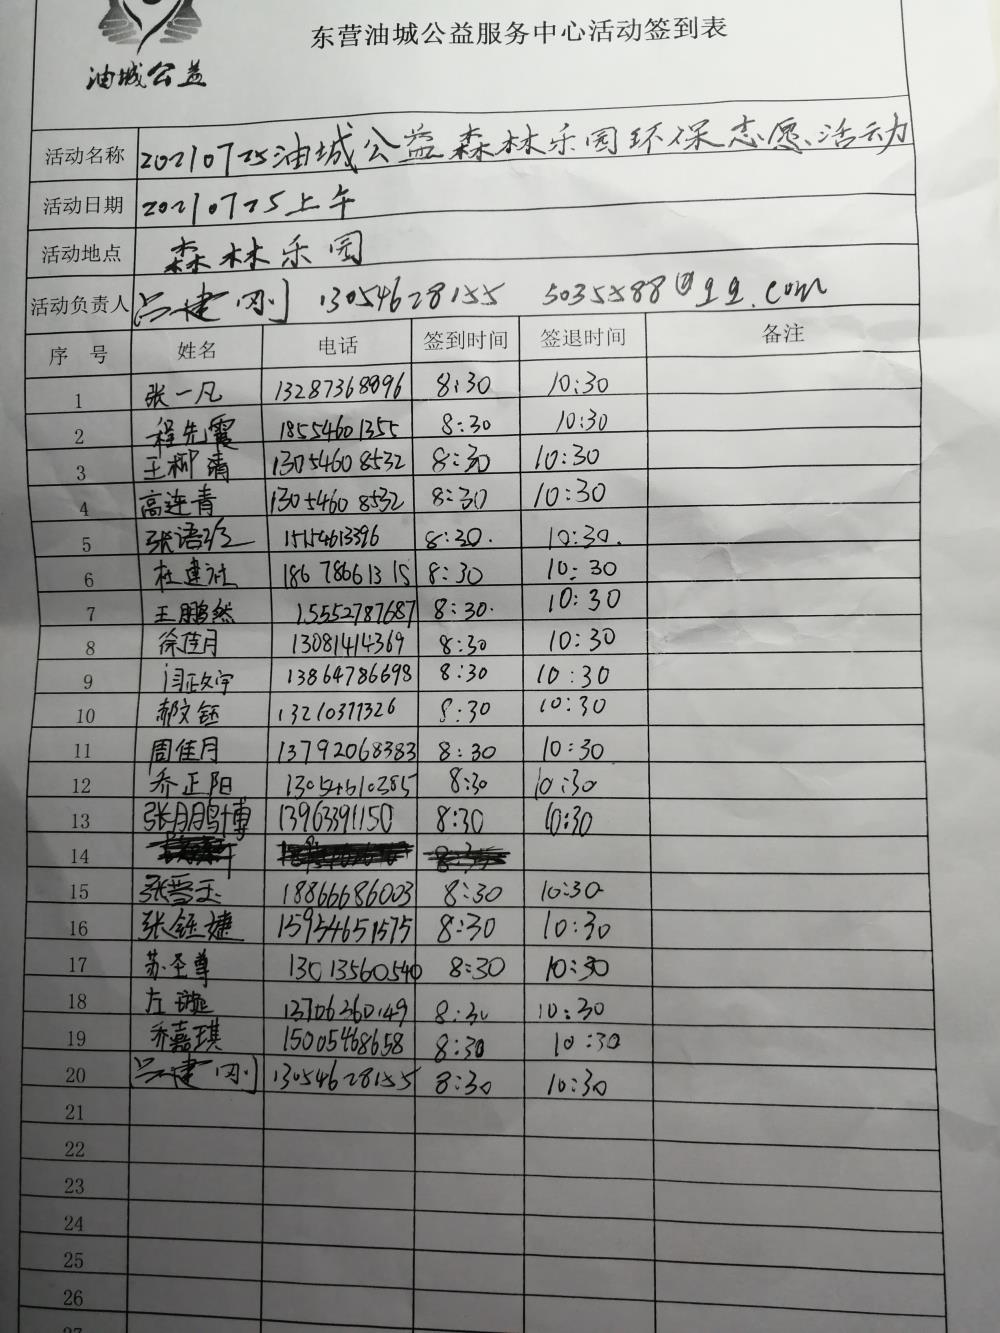 东营油城公益服务中心活动签到表
油城公益
活动名称 20210725油城公益森林乐园环保志愿活动
活动日期 20210725上午
活动地点 森林乐园
活动负责人 吕建刚 13054628155 5035588@qq.com
序 号 姓名 电话 签到时间 签退时间 备注
1 张一凡 13287368896 8:30 10:30
2 程先震 18554601355 8:30 10:30
3 王柳清 13054608532 8:30 10:30
4 高连青 13054608532 8:30 10:30
5 张语 15154613396 8:30. 10:30.
6 杜建社 18678661315 8:30 10:30
7 王鹏然 15552787687 8:30. 10:30
8 徐佳月 13081414369 8:30 10:30
9 闫政宇 13864786698 8:30 10:30
10 郝文钰 13210377326 8:30 10:30
11 周佳月 13792068383 8:30 10:30
12 乔正阳 13054610285 8:30 10:30
13 张鹏博 13963391150 8:30 10:30
14
15 张晋玉 18866686003 8:30 10:30
16 张钰婕 15954651575 8:30 10:30
17 苏圣尊 13013560540 8:30 10:30
18 左璇 13706360149 8:30 10:30
19 乔嘉琪 15005468658 8:30 10:30
20 吕建刚 13054628155 8:30 10:30
21
22
23
24
25
26
27